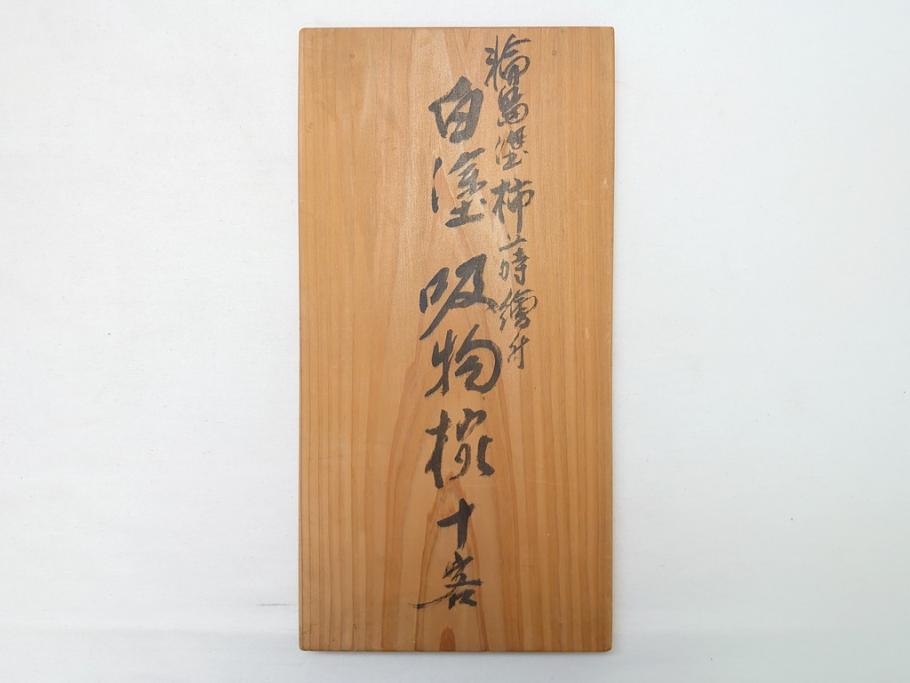 輪島塗柿蒔繪付
白塗 吸物椀 十客